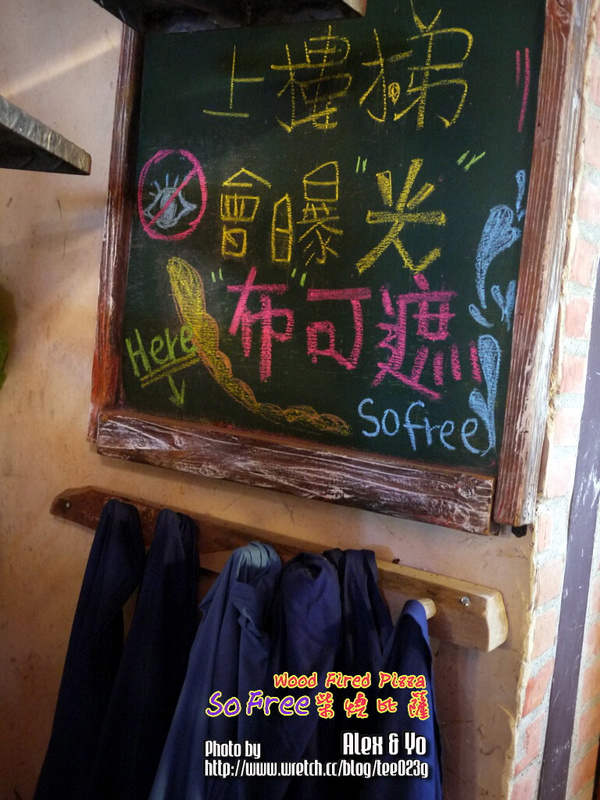 上樓梯
會曝"光"
"布"可遮!!!
Here
Sofree
Wood Fired Pizza
So Free 柴燒比薩
Photo by Alex & Yo
http://www.wretch.cc/blog/tee023g